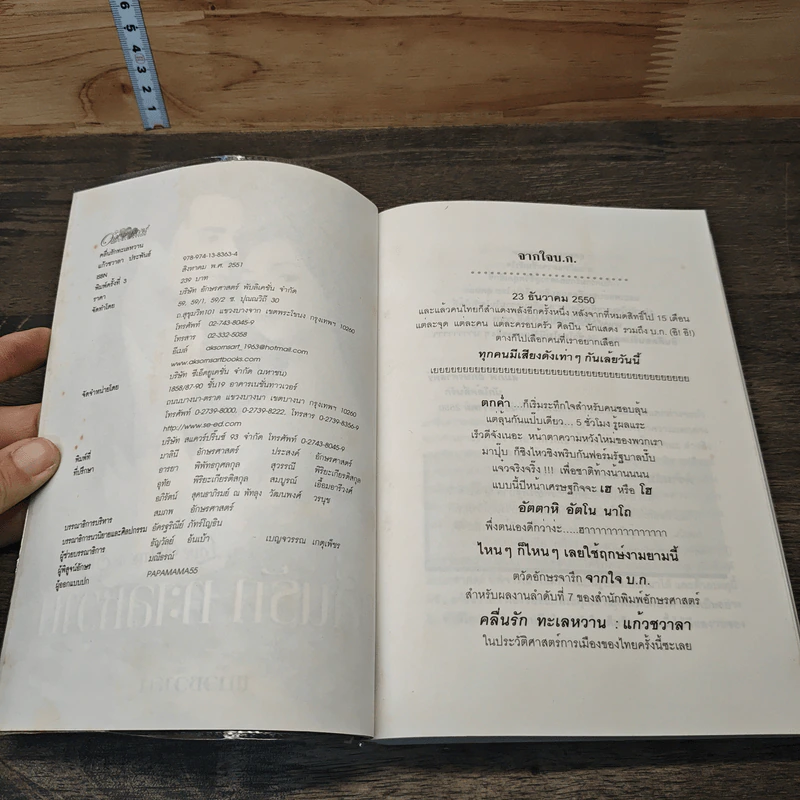 คลื่นรักทะเลหวาน
แก้วชวาลา ประพันธ์
ISBN 978-974-13-8363-4
พิมพ์ครั้งที่ 3 สิงหาคม พ.ศ. 2551
ราคา 239 บาท
จัดทำโดย บริษัท อักษรศาสตร์ พับลิเคชั่น จำกัด
59, 59/1, 59/2 ซ. ปุณณวิถี 30
ถ.สุขุมวิท101 แขวงบางจาก เขตพระโขนง กรุงเทพฯ 10260
โทรศัพท์ 02-743-8045-9
โทรสาร 02-332-5058
อีเมล์ aksornsart_1963@hotmail.com
www.aksornsartbooks.com
จัดจำหน่ายโดย บริษัท ซีเอ็ดยูเคชั่น จำกัด (มหาชน)
1858/87-90 ชั้น19 อาคารเนชั่นทาวเวอร์
ถนนบางนา-ตราด แขวงบางนา เขตบางนา กรุงเทพฯ 10260
โทรศัพท์ 0-2739-8000, 0-2739-8222, โทรสาร 0-2739-8356-9
http://www.se-ed.com
พิมพ์ที่ บริษัท สแควร์ปริ้นซ์ 93 จำกัด โทรศัพท์ 0-2743-8045-9
ที่ปรึกษา มาลินี อักษรศาสตร์ ประสงค์ อักษรศาสตร์
อารยา พิพิทธกุศลกุล สุวรรณี พิริยะเกียรติสกุล
อุทัย พิริยะเกียรติสกุล สมบูรณ์ เอื้อมอารีวงศ์
อภิรัตน์ สุคนธาภิรมย์ ณ พัทลุง วัฒนพงศ์ วรนุช
สมภพ อักษรศาสตร์
บรรณาธิการบริหาร อัครฐริณีย์ ภัทร์โญธิน
บรรณาธิการนวนิยายและศิลปกรรม ธัญวัลย์ อ้นเบ้า
ผู้ช่วยบรรณาธิการ เบญจวรรณ เกตุเพ็ชร
ผู้พิสูจน์อักษร มณีธรณ์
ผู้ออกแบบปก PAPAMAMA55
จากใจบ.ก.
23 ธันวาคม 2550
และแล้วคนไทยก็สำแดงพลังอีกครั้งหนึ่ง หลังจากที่หมดสิทธิ์ไป 15 เดือน
แต่ละจุด แต่ละคน แต่ละครอบครัว ศิลปิน นักแสดง รวมถึง บ.ก. (อิ! อิ!)
ต่างก็ไปเลือกคนที่เราอยากเลือก
ทุกคนมีเสียงดังเท่าๆ กันเล้ยวันนี้
เยยยยยยยยยยยยยยยยยยยยยยยยยยยยยยยยยยยยยยย
ตกค่ำ ...ก็เริ่มระทึกใจสำหรับคนชอบลุ้น
แต่ลุ้นกันแป๊บเดียว... 5 ชั่วโมง รู้ผลแระ
เร็วดีจังเนอะ หน้าตาความหวังใหม่ของพวกเรา
มาปุ๊บ ก็ชิงไหวชิงพริบกันฟอร์มรัฐบาลปั๊บ
แจวจริงจริง !!! เพื่อชาติทั้งน้านนนนน
แบบนี้ปีหน้าเศรษฐกิจจะ เฮ หรือ โฮ
อัตตาหิ อัตโน นาโถ
พึ่งตนเองดีกว่าง่ะ.....ฮาาาาาาาาาาาาาาา
ไหนๆ ก็ไหนๆ เลยใช้ฤกษ์งามยามนี้
ตวัดอักษรจารึก จากใจ บ.ก.
สำหรับผลงานลำดับที่ 7 ของสำนักพิมพ์อักษรศาสตร์
คลื่นรัก ทะเลหวาน : แก้วชวาลา
ในประวัติศาสตร์การเมืองของไทยครั้งนี้ซะเลย
6
5
4
3
2
1